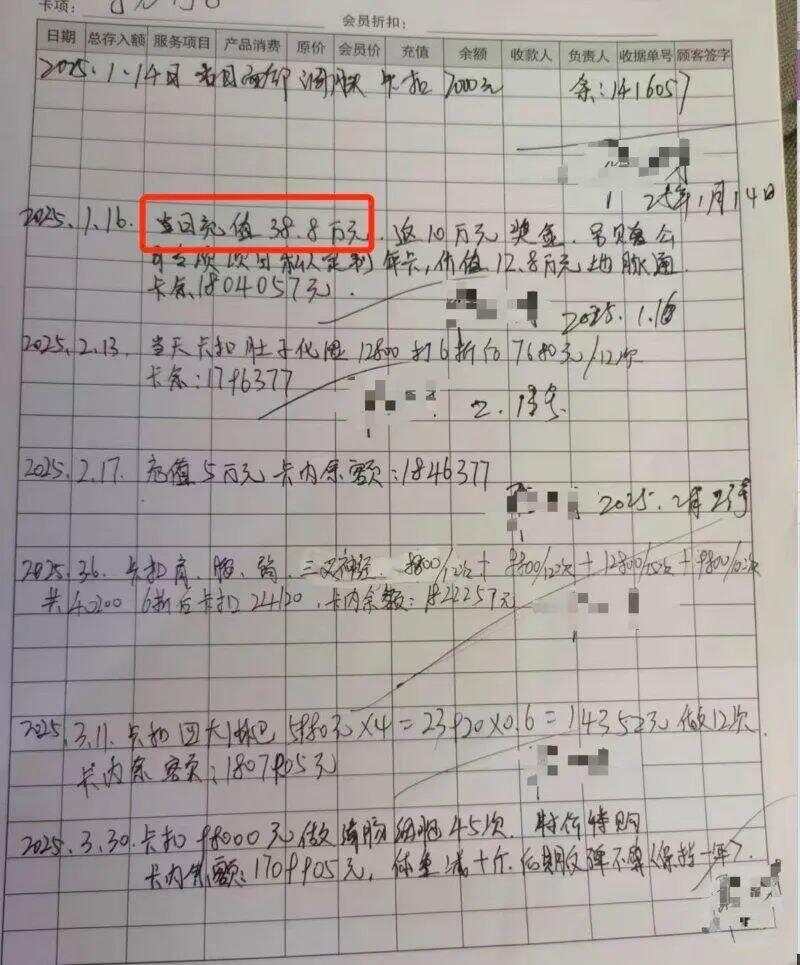 卡项:
会员折扣:
日期 总存入额 服务项目 产品消费 原价 会员价 充值 余额 收款人 负责人 收据单号 顾客签字
2025.1.14日 卡扣 7000元 余:1416057
25年1月14日
2025.1.16. 当日充值 38.8万元. 返10万元 奖金.
年卡,价值12.8万元 地脉通
卡余1804057元.
2025.1.16
2025.2.13. 当天卡扣肚子化湿 12800 打6折后 7680元/12次
卡余:1796377
2.13号
2025.2.17. 充值5万元 卡内余额:1846377
2025.2月23号
2025.3.6. 卡扣肩、腰、三叉神经. 9800/12次+9800/12次+12800/ +9800/12次
共40200 6折后卡扣24120.卡内余额:1822257元
2025.3.11.卡扣四大淋巴 5980元×4=23920×0.6=14352元 做12次.
卡内余额:1807905元
2025.3.30.卡扣98000元做 45次. 特价特购
卡内余额:1709905元, 体重减十斤. 后期反弹不算(保持一年).